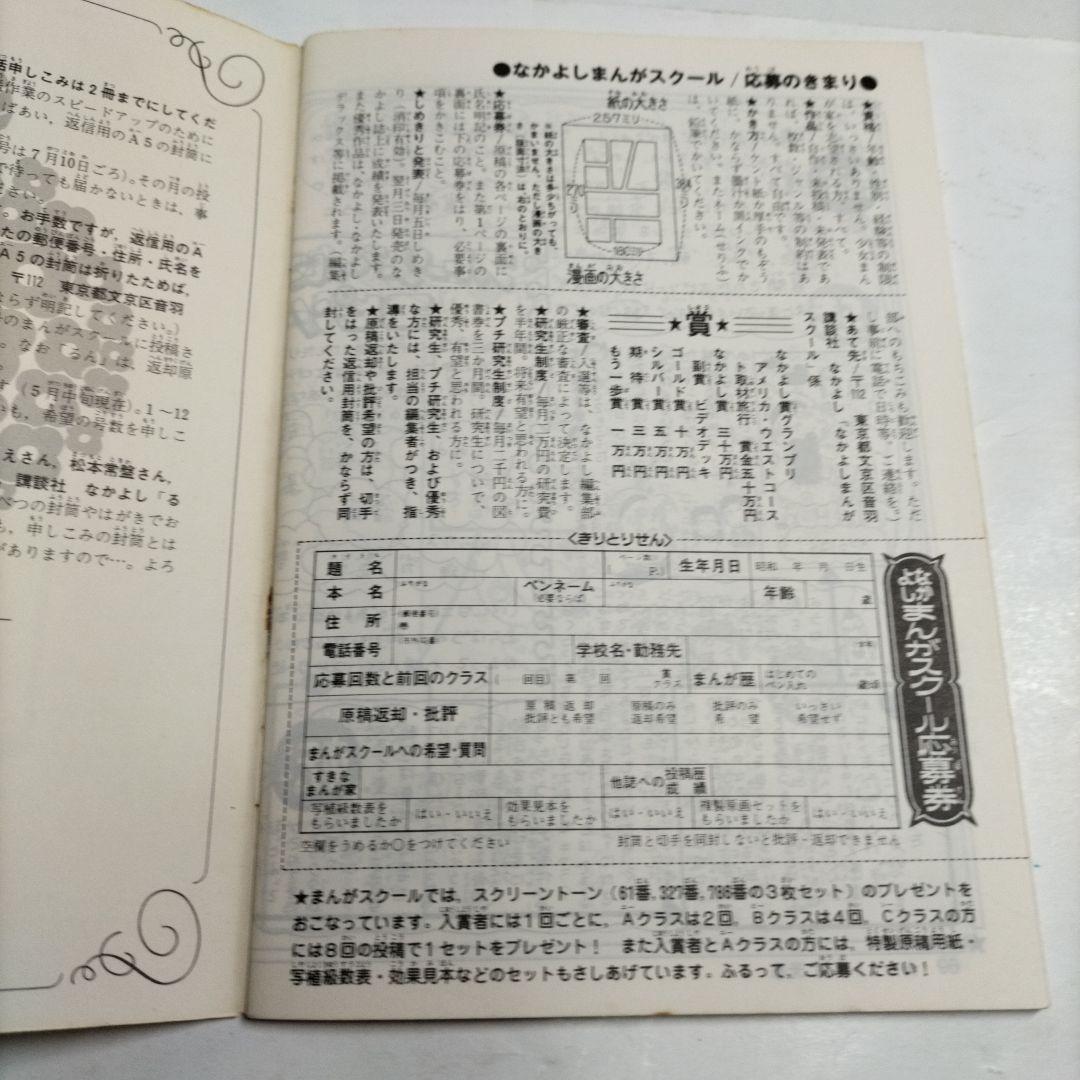 話申しこみは2冊までにしてくだ
作業のスピードアップのために
ばあい，返信用のA5の封筒に
号は7月10日ごろ)。その月の投
で待っても届かないときは，事
ださい。
。お手数ですが，返信用のA
たの郵便番号・住所・氏名を
A5の封筒は折りたためば，
〒112 東京都文京区音羽
ならず明記してください。)
のまんがスクールに投稿さ
。なお「るん」は，返却原
(5月中旬現在)。1〜12
いも，希望の号数を申しこ
えさん，松本常盤さん，
講談社 なかよし「る
べつの封筒やはがきでお
も，申しこみの封筒とは
がありますので…。よろ
●なかよしまんがスクール／応募のきまり●
★資格／年齢・性別・経験等の制限
は，いっさいありません。少女まん
が家を希望される方，すべて。
れば，枚数・ジャンル等の制約はあ
りません。すべて自由です。
★かき方／ケント紙か厚手のもぞう
紙に，かならず墨汁か黒インクでか
いてください。またネーム(せりふ)
は，鉛筆でかいてください。
紙の大きさ
257ミリ
364ミリ
270ミリ
180ミリ
漫画の大きさ
※紙の大きさは多少ちがっても，
かまいません。ただし漫画の大き
さ(版面寸法)は，右のとおりに。
★応募券／原稿の各ページの裏面に
氏名明記のこと。また第1ページの
裏面には下の応募券をはり，必要事
項をかきこむこと。
★しめきりと発表／毎月五日しめき
り(消印有効)。翌月三日発売のな
かよし誌上に成績を発表いたします。
また優秀作品は，なかよし・なかよし
デラックス等に掲載されます。(編集
部へのもちこみも歓迎します。ただ
し事前に電話で日時等，ご連絡を。)
★あて先／〒112 東京都文京区音羽
講談社 なかよし「なかよしまんが
スクール」係
★賞★
なかよし賞グランプリ
アメリカ・ウエストコース
ト取材旅行 賞金五十万円
なかよし賞 三十万円
副賞 ビデオデッキ
ゴールド賞 十万円
シルバー賞 五万円
期待賞 三万円
もう一歩賞 一万円
★審査／入選等は，なかよし編集部
の厳正な審査によって決定します。
★研究生制度／毎月二万円の研究費
を半年間。将来有望と思われる方に。
★プチ研究生制度／毎月二千円の図
書券を三か月間。研究生について，
優秀，有望と思われる方に。
★研究生，プチ研究生，および優秀
な方には，担当の編集者がつき，指
導をいたします。
★原稿返却や批評希望の方は，切手
をはった返信用封筒を，かならず同
封してください。
〈きりとりせん〉
題名 ページ数 ( P.) 生年月日 昭和 年 月 日生
本名 ふりがな ペンネーム (必要ならば) ふりがな 年齢 歳
住所 (郵便番号)
電話番号 (市外局番) 学校名・勤務先
応募回数と前回のクラス ( 回目) 第 回 賞 クラス まんが歴 はじめての ペン入れ 歳頃
原稿返却・批評 原稿返却 批評とも希望 原稿のみ 返却希望 批評のみ 希望 いっさい 希望せず
まんがスクールへの希望・質問
すきな まんが家 他誌への投稿歴 成績
写植級数表を もらいましたか はい・いいえ 効果見本を もらいましたか はい・いいえ 複製原画セットを もらいましたか はい・いいえ
空欄をうめるか○をつけてください 封筒と切手を同封しないと批評・返却できません
なかよしまんがスクール応募券
★まんがスクールでは，スクリーントーン(61番，327番，786番の3枚セット)のプレゼントを
おこなっています。入賞者には1回ごとに，Aクラスは2回，Bクラスは4回，Cクラスの方
には8回の投稿で1セットをプレゼント！ また入賞者とAクラスの方には，特製原稿用紙・
写植級数表・効果見本などのセットもさしあげています。ふるって，ご応募ください！